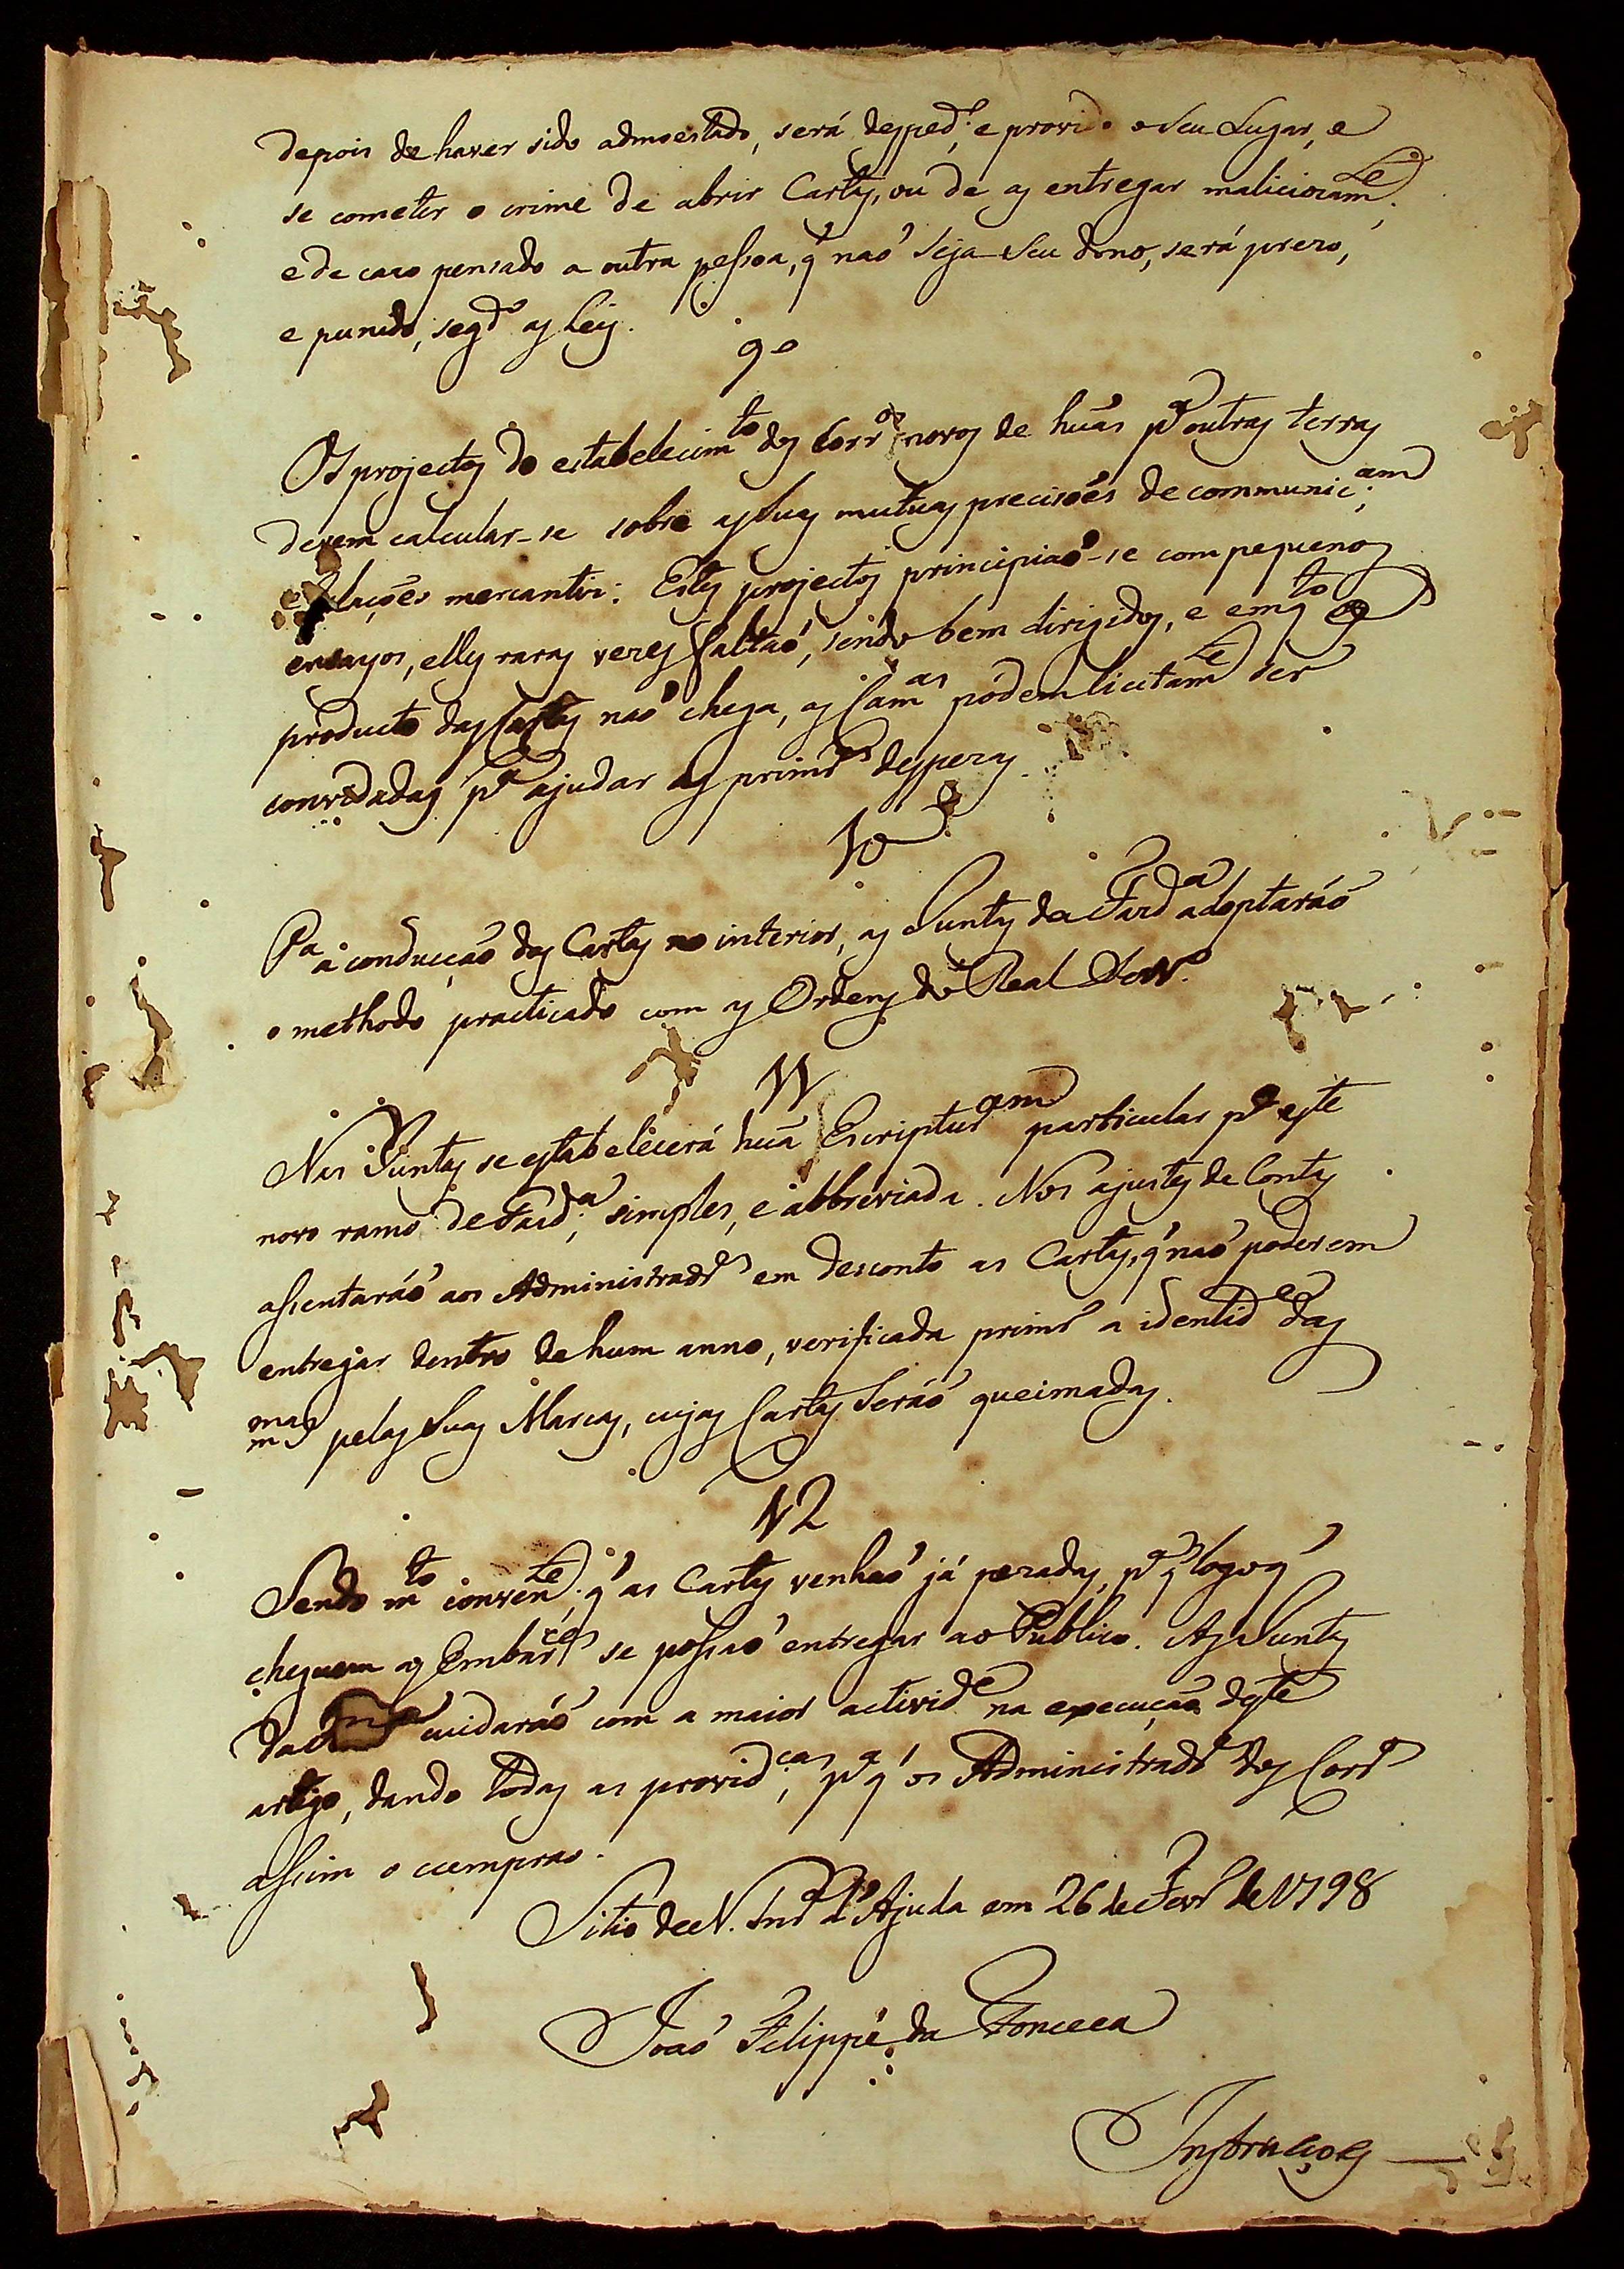 depois de haver sido admoestado, será desped.º e provido o seu Lugar, e
se cometer o crime de abrir Cartas, ou de as entregar maliciozam.te
e de cazo pensado a outra pessoa, q̃ naõ seja seu dono, será prezo,
e punido, seg.do as Leis.
9º
Os projectos do estabelecim.to dos Corr.os novos de huãs p.a outras terras
devem calcular-se sobre as suas mutuas precisões de communic.am
e laçoẽs mercantis: Estes projectos principiaõ-se com pequenos
ensayos, elles raras vezes faltaõ, sendo bem dirigidos, e em q.to o
producto das Cartas naõ chega, as Cam.as podem licitam.te ser
convidadas p.a ajudar as prim.ras despezas.
10
Pa a conducçaõ das Cartas no interior, as Juntas da Fazd.a adoptaráõ
o methodo practicado com as Ordens do Real Serv.º
11
Nas Juntas se estabelecerá huã Escriptur.am particular p.a este
novo ramo de Fazd.a, simples, e abbreviada. Nos ajustes de Contas
assentaráõ aos Administrad.es em desconto as Cartas, q̃ naõ poderem
entregar dentro de hum anno, verificada prim.ro a identid.e das
m.mas pelas suas Marcas, cujas Cartas seráõ queimadas.
12
Sendo m.to conven.te q̃ as Cartas venhaõ já pezadas, p.a q̃ logo q̃
cheguem as Embar.ces se possaõ entregar ao Publico. As Juntas
da cuidaráõ com a maior activid.e na execuçaõ deste
artigo, dando todas as provid.cas, p.a q̃ os Administrad.es dos Corr.os
assim o cumpraõ.
Sitio de N. Snr.a d'Ajuda em 26 de Fevr.º de 1798
Joaõ Filippe da Fonceca
Instruçoes